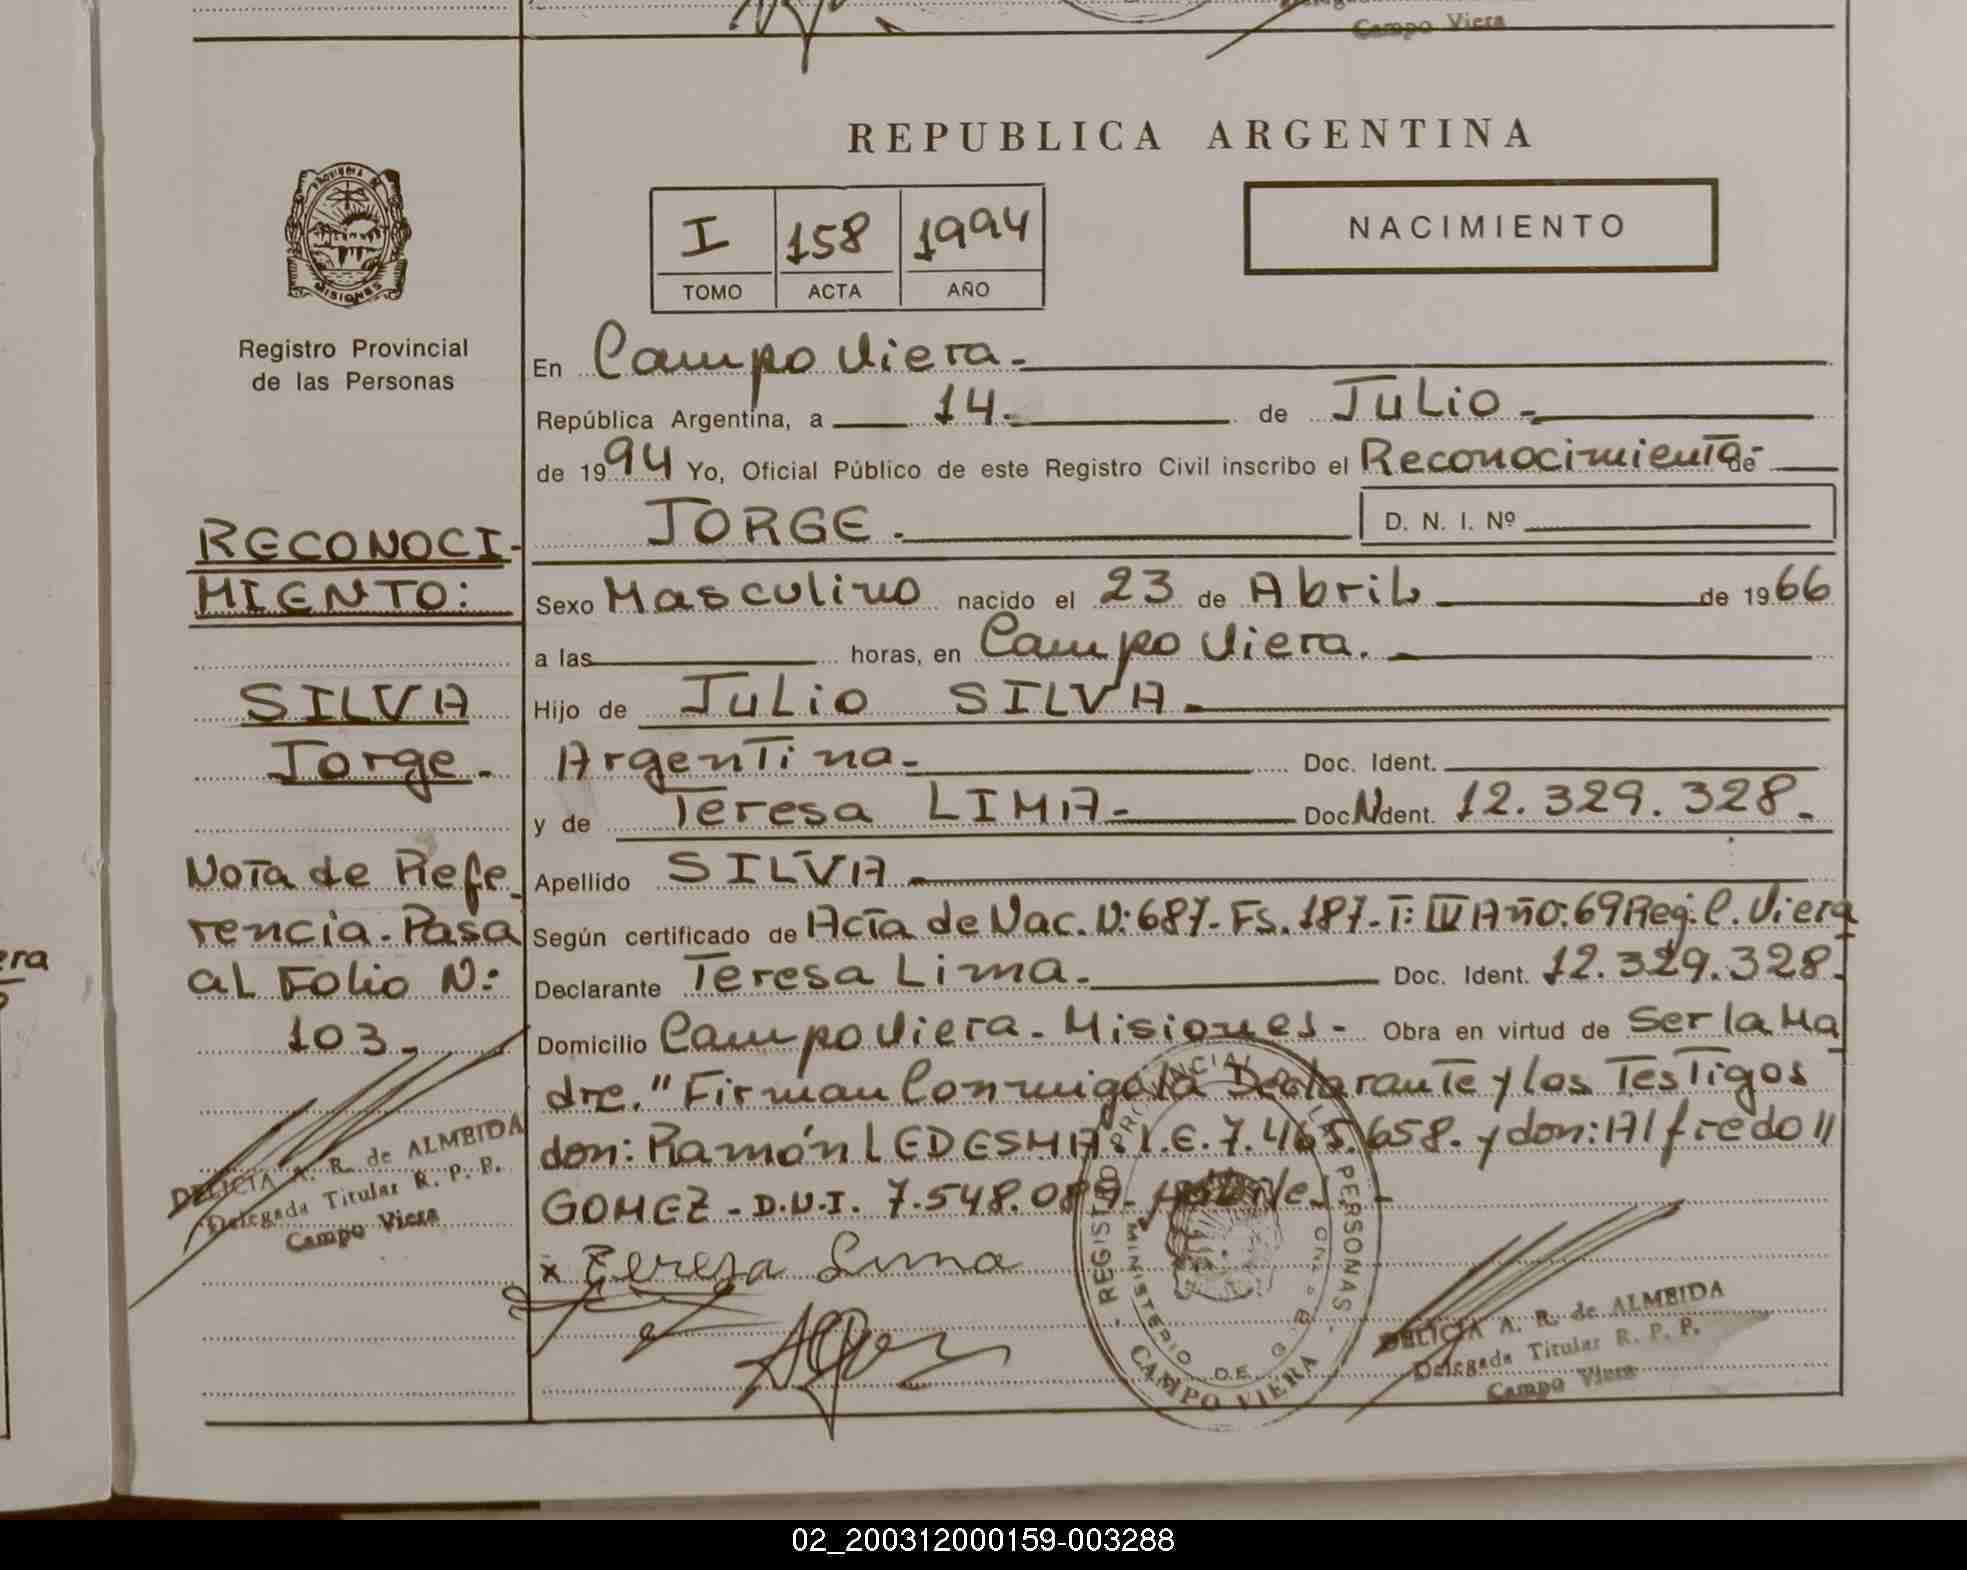 Campo Viera
REPUBLICA ARGENTINA
PROVINCIA DE
MISIONES
Registro Provincial
de las Personas
I 158 1994
TOMO ACTA AÑO
NACIMIENTO
En Campo Viera.
República Argentina, a 14. de Julio
de 1994 Yo, Oficial Público de este Registro Civil inscribo el Reconocimiento de
JORGE. D. N. I. Nº
Sexo Masculino nacido el 23 de Abril de 1966
a las horas, en Campo Viera.
Hijo de Julio SILVA
Argentina Doc. Ident.
y de Teresa LIMA Doc. Ident. 12.329.328
Apellido SILVA
Según certificado de Acta de Nac. N: 687-Fs. 187-T: IV Año: 69 Reg: C. Viera
Declarante Teresa Lima. Doc. Ident. 12.329.328
Domicilio Campo Viera - Misiones - Obra en virtud de Ser la Ma
dre." Firman Conmigo la Declarante y los Testigos
don: Ramón LEDESMA: L.E. 7.465.658. y don: Alfredo //
GOMEZ - D.N.I. 7.548.089
x Teresa Lima
RECONOCI-
MIENTO:
SILVA
Jorge.
Nota de Refe
rencia. Pasa
al Folio N:
103
DELICIA A. R. de ALMEIDA
Delegada Titular R. P. P.
Campo Viera
REGISTRO PROVINCIAL DE LAS PERSONAS
MINISTERIO DE G.
CAMPO VIERA
DELICIA A. R. de ALMEIDA
Delegada Titular R. P. P.
Campo Viera
era
02_200312000159-003288